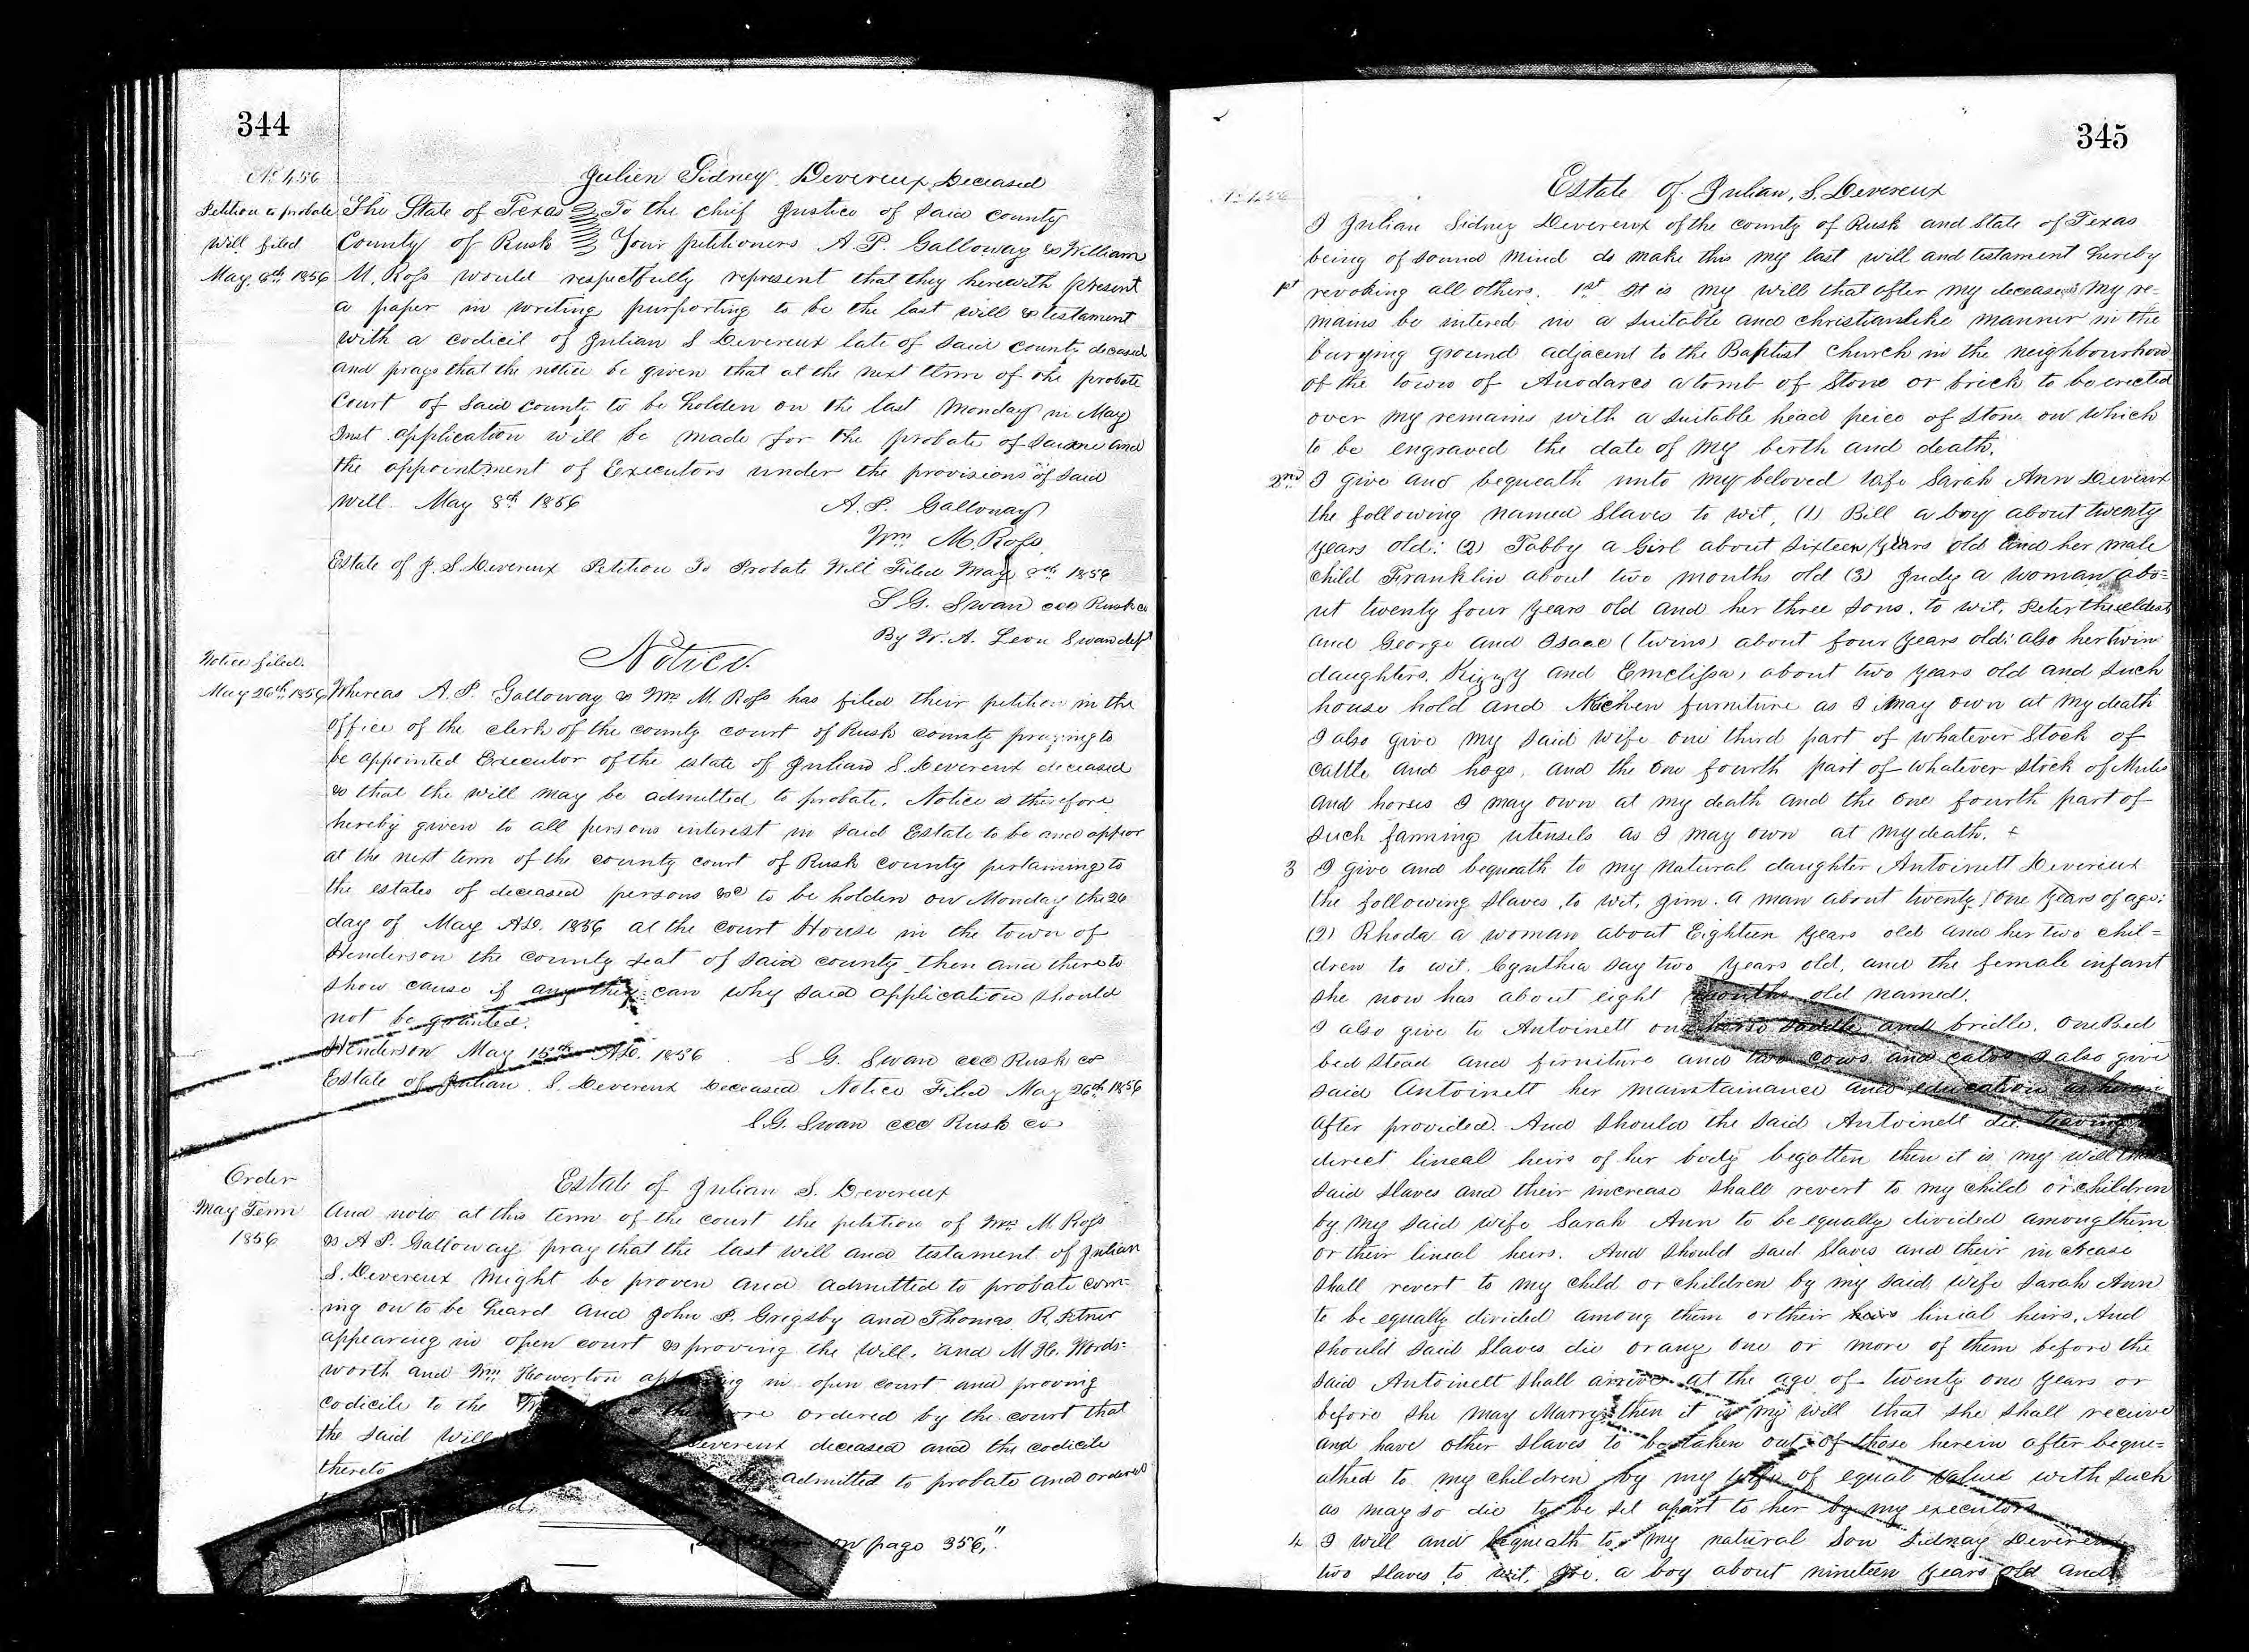 344
No 456
Julien Sidney Devereux Deceased
Petition to probate The State of Texas To the chief Justice of said county
Will filed County of Rusk Your petitioners A. P. Galloway & William
May 8th 1856 M. Ross would respectfully represent that they herewith present
a paper in writing purporting to be the last will & testament
with a codicil of Julian S Devereux late of said county deceased
and prays that the notice be given that at the next term of the probate
Court of said county to be holden on the last Monday in May
Inst application will be made for the probate of same and
the appointment of Executors under the provisions of said
will. May 8th 1856 A. P. Galloway
Wm M. Ross
Estate of J. S. Devereux Petition To Probate Will Filed May 8th 1856
S. G. Swan CCC Rusk co
By W. A. Leon Swan dept
Notice
Notice filed.
May 26th 1856 Whereas A. P. Galloway & Wm M. Ross has filed their petition in the
office of the clerk of the county court of Rusk county praying to
be appointed Executor of the estate of Julian S. Devereux deceased
& that the will may be admitted to probate. Notice is therefore
hereby given to all persons interest in said Estate to be and appear
at the next term of the county court of Rusk county pertaining to
the estates of deceased persons &c to be holden on Monday the 26
day of May AD. 1856 at the court House in the town of
Henderson the county seat of said county then and there to
show cause if any they can why said application should
not be granted.
Henderson May 15th AD. 1856 S. G. Swan CCC Rusk co
Estate of Julian S. Devereux Deceased Notice Filed May 26th 1856
S. G. Swan CCC Rusk co
Order Estate of Julian S. Devereux
May Term And now at this term of the court the petition of Wm M. Ross
1856 & A P. Galloway pray that the last will and testament of Julian
S. Devereux might be proven and admitted to probate com=
ing on to be heard and John P. Grigsby and Thomas R.
appearing in open court & proving the will, and M H. Words=
worth and Wm Howerton in open court and proving
codicile to the ordered by the court that
the said will Devereux deceased and the codicile
thereto admitted to probate and ordered
on page 356,"
345
No 456
Estate of Julian, S. Devereux
I Julian Sidney Devereux of the county of Rusk and State of Texas
being of sound mind do make this my last will and testament hereby
1st revoking all others. 1st It is my will that after my decease my re=
mains be intered in a suitable and christianlike manner in the
burying ground adjacent to the Baptist church in the neighbourhood
of the town of Anodarco a tomb of Stone or brick to be erected
over my remains with a suitable head peice of stone on which
to be engraved the date of my berth and death.
2nd I give and bequeath unto my beloved wife Sarah Ann Devereux
the following named slaves to wit, (1) Bill a boy about twenty
years old: (2) Tabby a Girl about sixteen years old and her male
child Franklin about two months old (3) Judy a woman abo=
ut twenty four years old and her three sons. to wit, Peter the eldest
and George and Isaac (twins) about four years old: also her twin
daughters, Kizzy and Emelissa, about two years old and such
house hold and Kitchen furniture as I may own at my death
I also give my said wife one third part of whatever Stock of
cattle and hogs, and the one fourth part of whatever stock of Mules
and horses I may own at my death and the one fourth part of
such farming utensils as I may own at my death. +
3 I give and bequeath to my natural daughter Antoinett Devereux
the following slaves, to wit, Jim. a man about twenty one years of age:
(2) Rhoda a woman about Eighteen years old and her two chil=
dren to wit. Cynthia say two years old, and the female infant
she now has about eight months old named.
I also give to Antoinett one horse saddle and bridle. One Bed
bed stead and firniture and two cows and calves I also give
said Antoinett her maintainance and education as herein
after provided. And should the said Antoinett die leaving
direct lineal heirs of her body begotten then it is my will that
said slaves and their increase shall revert to my child or children
by my said wife Sarah Ann to be equally divided among them
or their lineal heirs. And should said slaves and their increase
shall revert to my child or children by my said, wife Sarah Ann
to be equally divided among them or their heirs linial heirs. And
should said slaves die or any one or more of them before the
said Antoinett shall arrive at the age of twenty one years or
before she may Marry, then it is my will that she shall recieve
and have other slaves to be taken out of those herein after beque=
athed to my children by my wife of equal value with such
as may so die to be set apart to her by my executors
4 I will and bequeath to my natural son Sidney Devereux
two slaves to wit, Joe. a boy about nineteen years old and